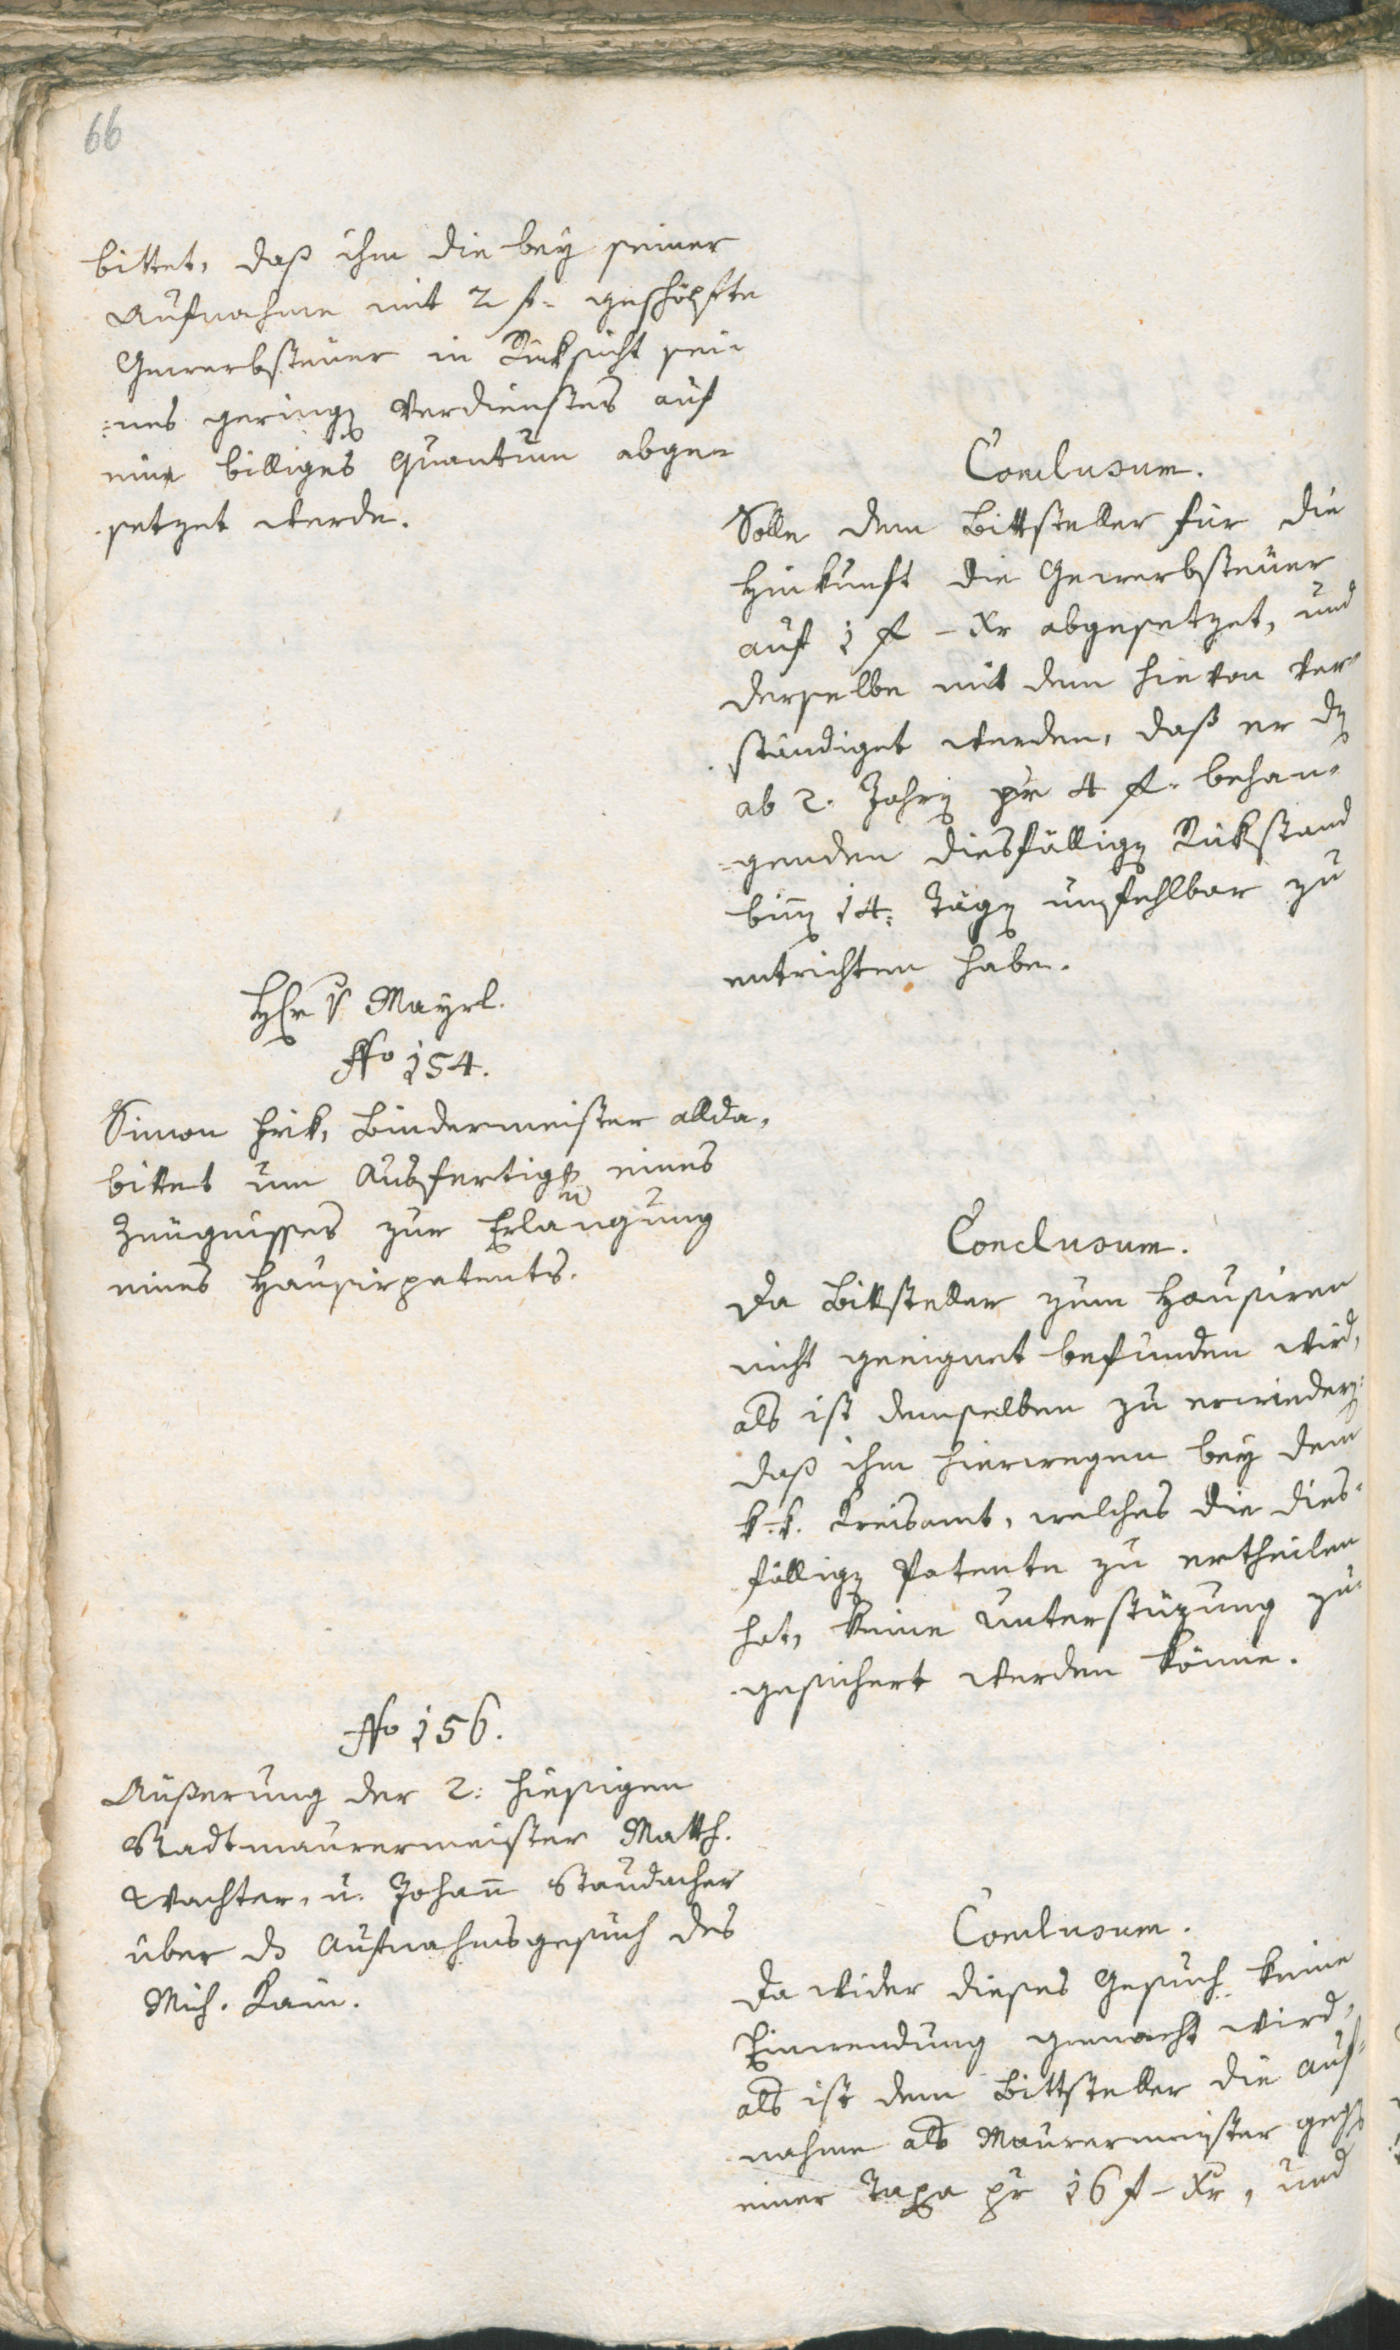 66
bittet, daß ihm die bey seiner
Aufnahme mit 2 f. geschöpfte
Gewerbsteuer in Rüksicht sei-
nes geringen Verdienstes auf
ein billiges Quantum abge-
setzet werde.
Conclusum.
Solle dem Bittsteller für die
Hinkunft die Gewerbsteuer
auf 1 f - Xr abgesetzet, und
derselbe mit dem hievon ver-
ständiget werden, daß er den
ab 2. Jahren pr 4 f. behan-
genden diesfälligen Rükstand
binnen 14. Tägen unfehlbar zu
entrichten habe.
Hr v Mayrl.
No 154.
Simon Hirk, Bindermeister allda,
bittet um Ausfertigg eines
Zeugnisses zur Erlangung
eines Hausirpatents.
Conclusum.
Da Bittsteller zum Hausiren
nicht geeignet befunden wird,
als ist demselben zu erwiedern:
daß ihm hierwegen bey dem
k. k. Kreisamt, welches die dies-
fälligen Patente zu ertheilen
hat, keine Unterstüzung zu-
gesichert werden könne.
No 156.
Äußerung der 2. hiesigen
Stadtmaurermeister Matth.
Wachter, u. Johann Staudacher
über das Aufnahmsgesuch des
Mich. Kain.
Conclusum.
Da wider dieses Gesuch keine
Einwendung gemacht wird,
als ist dem Bittsteller die Auf-
nahme als Maurermeister gegen
einer Taxa pr 16 f - Xr, und